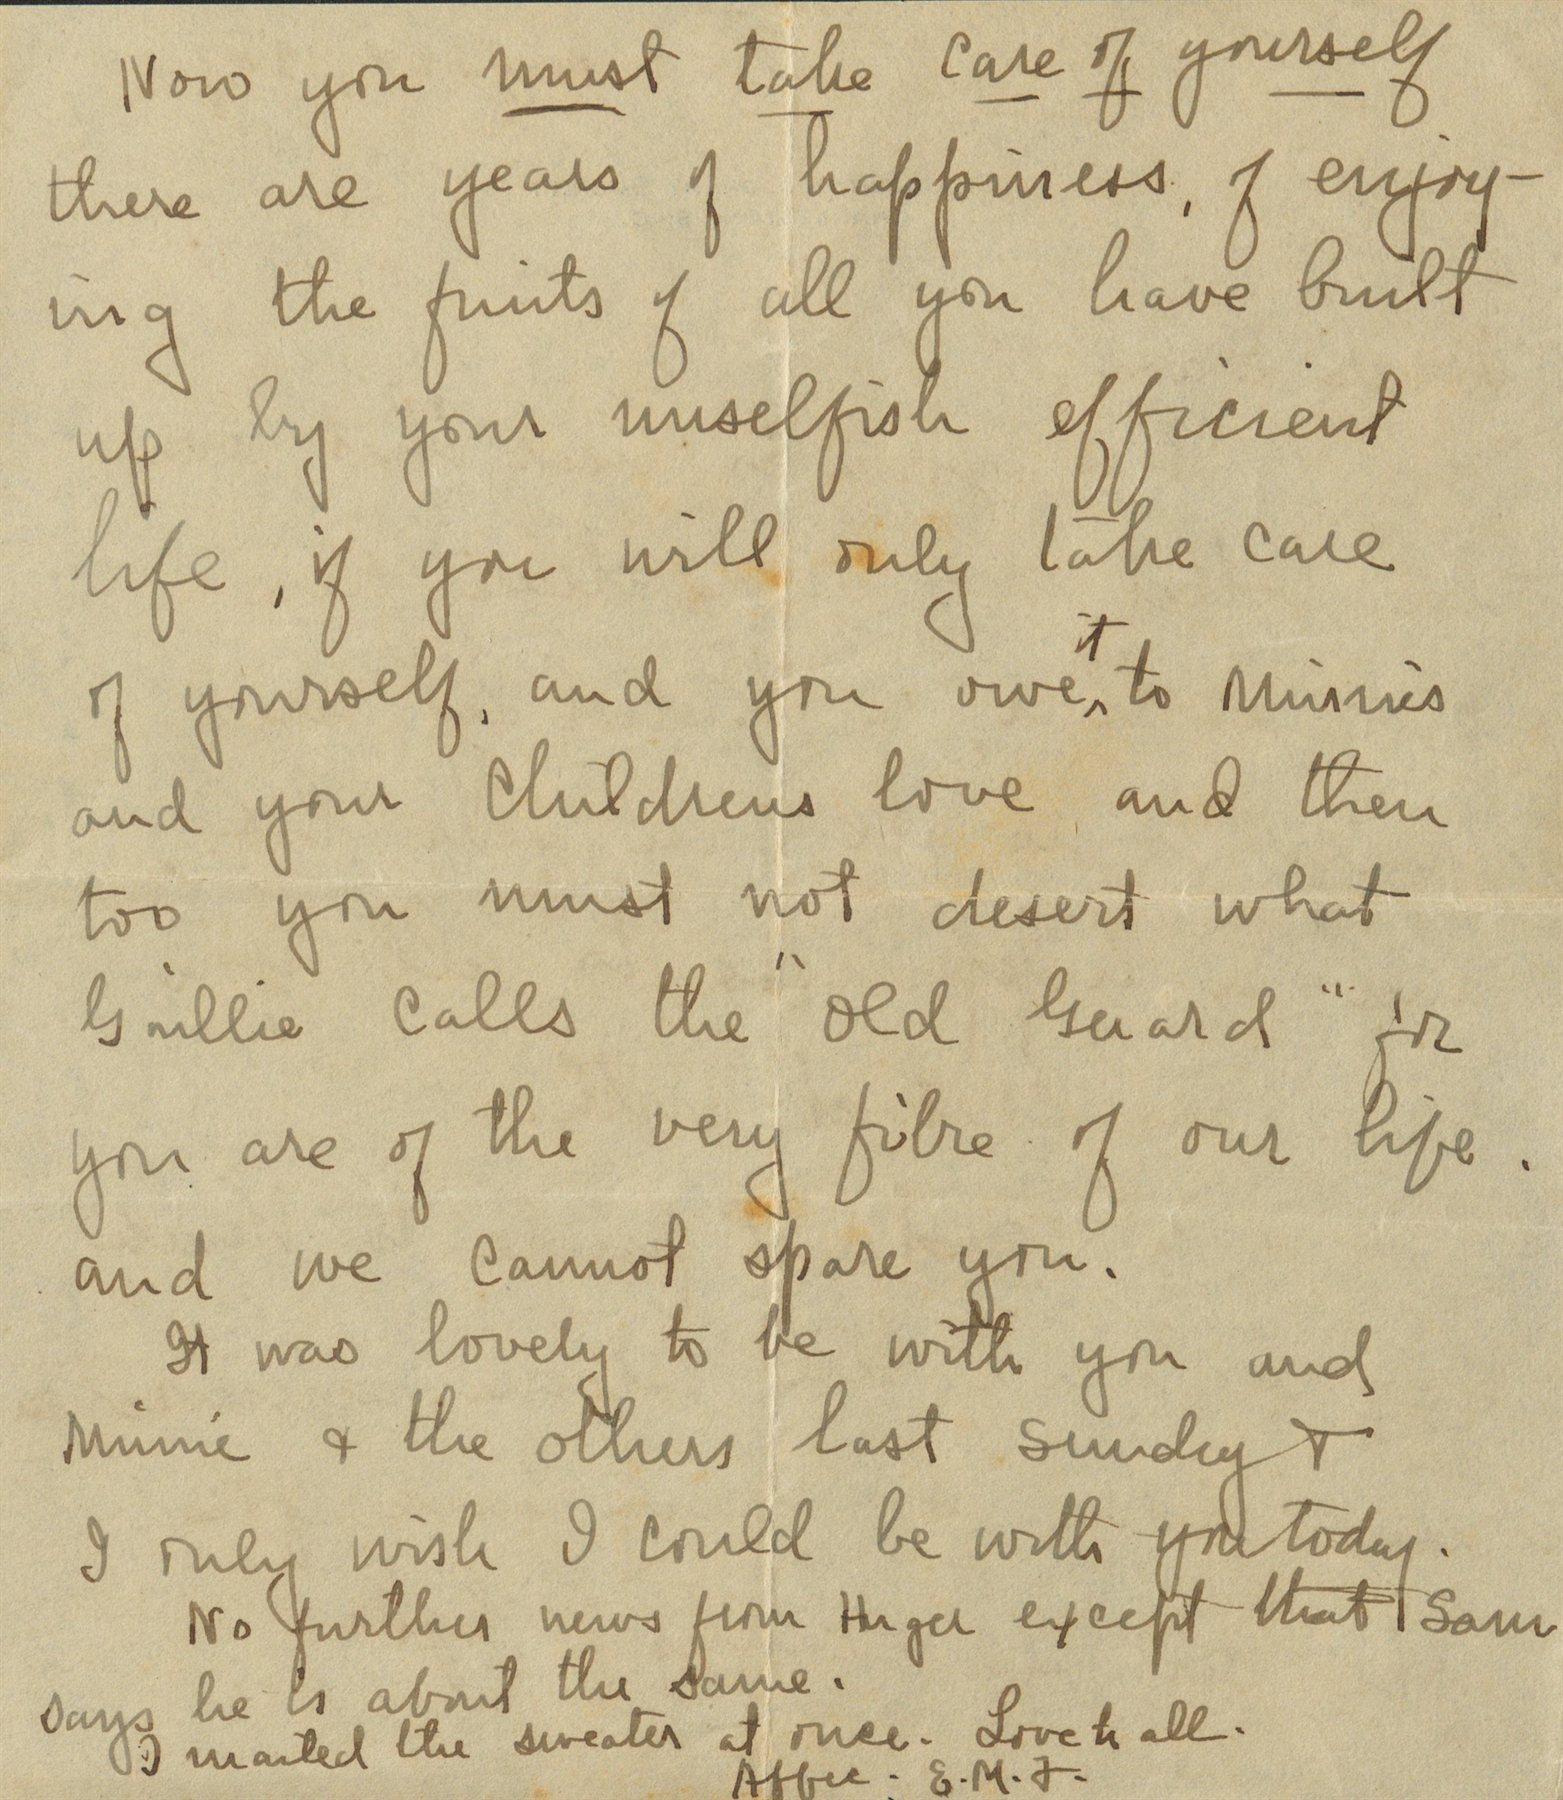 Now you must take care of yourself
there are years of happiness, of enjoy-
ing the fruits of all you have built
up by your unselfish efficient
life, if you will only take care
of yourself, and you owe it to Minnies
and your childrens love and then
too you must not desert what
Gaillie calls the "Old Guard" for
you are of the very fibre of our life.
and we cannot spare you.
It was lovely to be with you and
Minnie & the others last Sunday &
I only wish I could be with you today.
No further news from Huger except that Sam
says he is about the same.
I mailed the sweater at once. Love to all.
Affec. E.M.J.